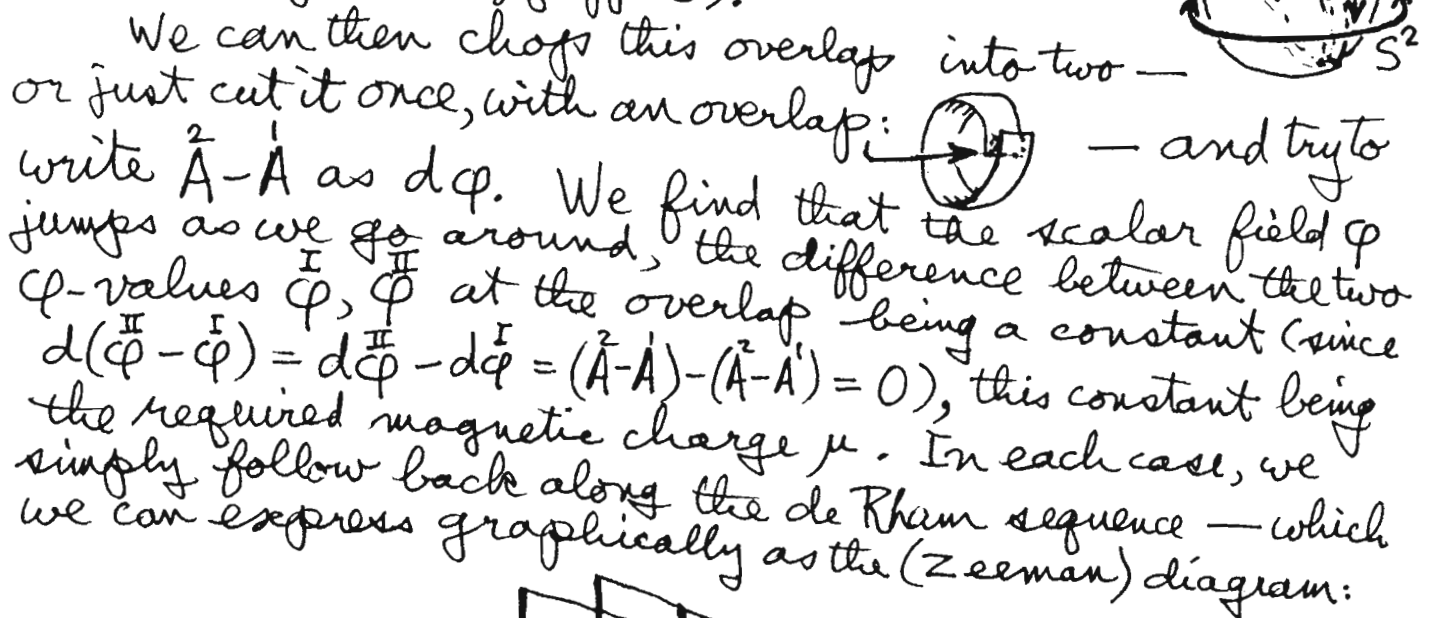 We can then chop this overlap into two — S²
or just cut it once, with an overlap: — and try to
write Å²-Å¹ as dφ. We find that the scalar field φ
jumps as we go around, the difference between the two
φ-values φᴵ, φᴵᴵ at the overlap being a constant (since
d(φᴵᴵ - φᴵ) = dφᴵᴵ - dφᴵ = (A²-A¹)-(A²-A¹) = 0), this constant being
the required magnetic charge μ. In each case, we
simply follow back along the de Rham sequence — which
we can express graphically as the (Zeeman) diagram: